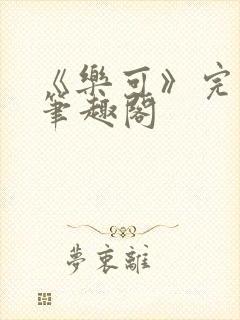 《樂可》完
筆趣閣
夢裏離